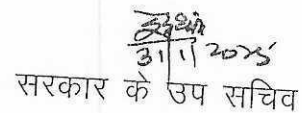 31/1/2025
सरकार के उप सचिव